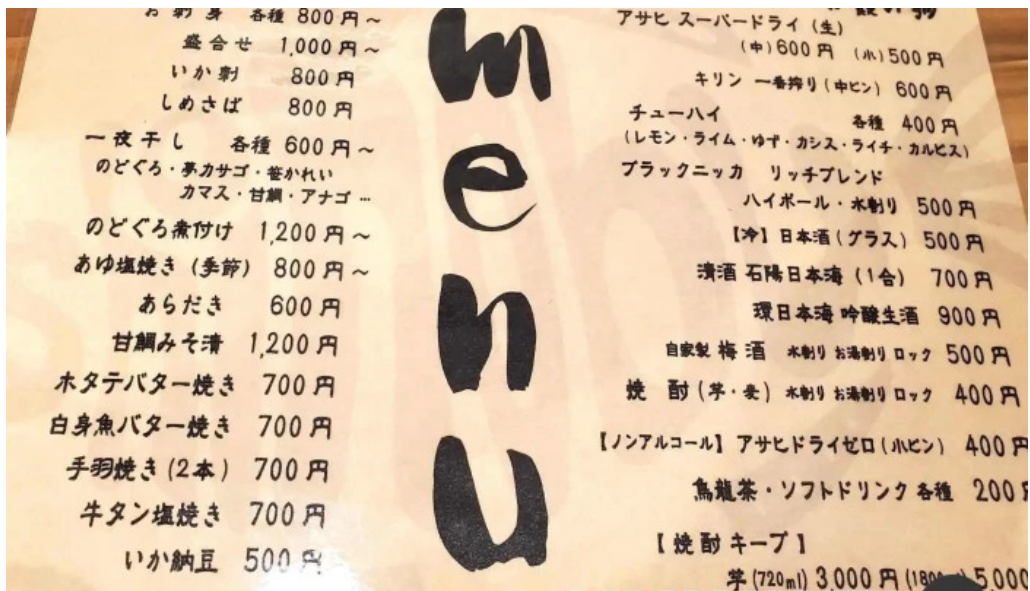 お刺身 各種 800円～
盛合せ 1,000円～
いか刺 800円
しめさば 800円
一夜干し 各種 600円～
のどぐろ・夢カサゴ・笹かれい
カマス・甘鯛・アナゴ…
のどぐろ煮付け 1,200円～
あゆ塩焼き(季節) 800円～
あらだき 600円
甘鯛みそ漬 1,200円
ホタテバター焼き 700円
白身魚バター焼き 700円
手羽焼き(2本) 700円
牛タン塩焼き 700円
いか納豆 500円
menu
アサヒ スーパードライ(生)
(中)600円 (小)500円
キリン 一番搾り(中ビン) 600円
チューハイ 各種 400円
(レモン・ライム・ゆず・カシス・ライチ・カルピス)
ブラックニッカ リッチブレンド
ハイボール・水割り 500円
【冷】日本酒(グラス) 500円
清酒 石陽日本海(1合) 700円
環日本海 吟醸生酒 900円
自家製 梅酒 水割り お湯割り ロック 500円
焼酎(芋・麦) 水割り お湯割り ロック 400円
【ノンアルコール】アサヒドライゼロ(小ビン) 400円
烏龍茶・ソフトドリンク 各種 200円
【焼酎キープ】
芋(720ml) 3,000円 5,000